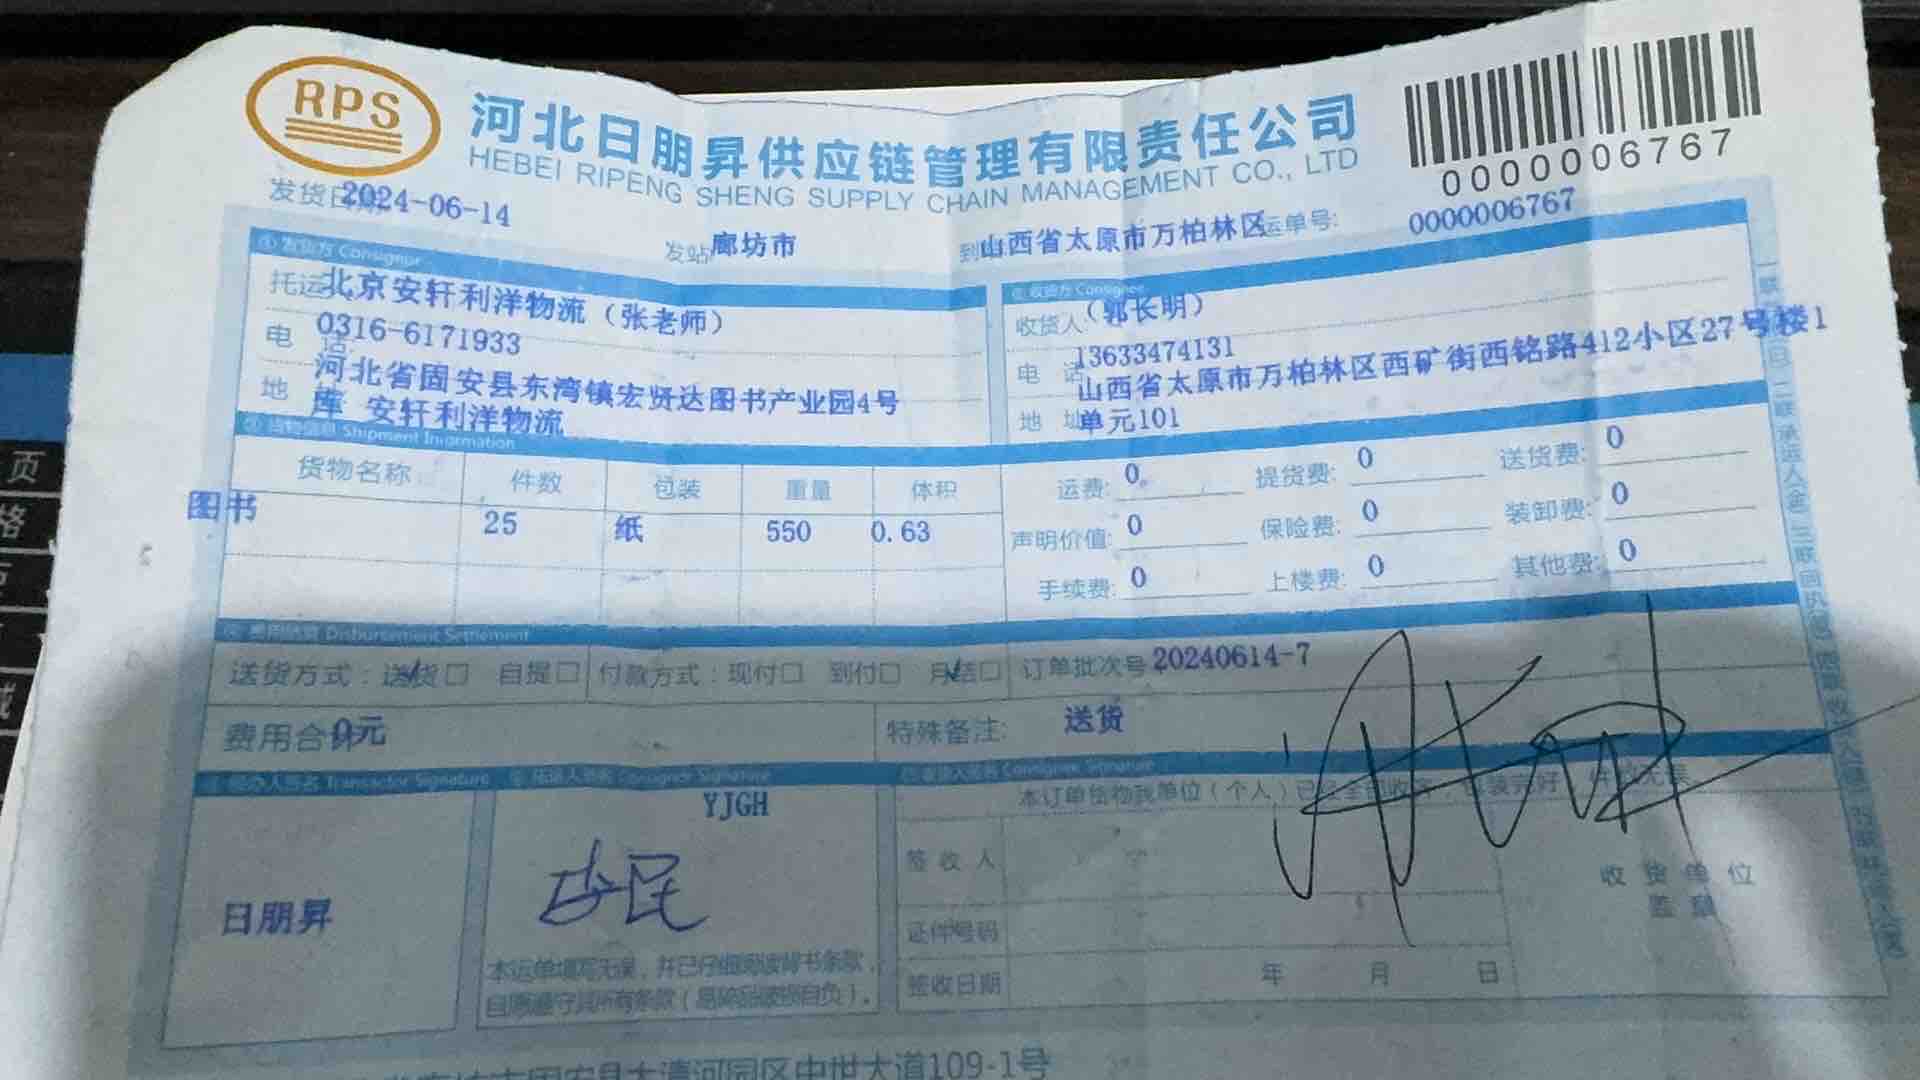 RPS
河北日朋昇供应链管理有限责任公司
HEBEI RIPENG SHENG SUPPLY CHAIN MANAGEMENT CO., LTD
0000006767
发货日期 2024-06-14 发站 廊坊市 到 山西省太原市万柏林区 运单号: 0000006767
① 发货方 Consignor
托运 北京安轩利洋物流（张老师）
电 话 0316-6171933
地 河北省固安县东湾镇宏贤达图书产业园4号
库 安轩利洋物流
② 收货方 Consignee
收货人 （郭长明）
电 话 13633474131
山西省太原市万柏林区西矿街西铭路412小区27号楼1
地 址 单元101
③ 货物信息 Shipment Information
货物名称 件数 包装 重量 体积
图书 25 纸 550 0.63
运费: 0 提货费: 0 送货费: 0
声明价值: 0 保险费: 0 装卸费: 0
手续费: 0 上楼费: 0 其他费: 0
④ 费用结算 Disbursement Settlement
送货方式：送货□ 自提□ 付款方式：现付□ 到付□ 月结□ 订单批次号 20240614-7
费用合计 0元 特殊备注: 送货
经办人签名 Transactor Signature
托运人签名 Consignor Signature
收货人签名 Consignee Signature
日朋昇
YJGH
本运单填写无误，并已仔细阅读背书条款，
自愿遵守其所有条款（易碎品破损自负）。
本订单货物我单位（个人）已全部收字，包装完好，件数无误
签收人
证件号码
签收日期 年 月 日
收货单位
盖章
固安县大清河园区中世大道109-1号